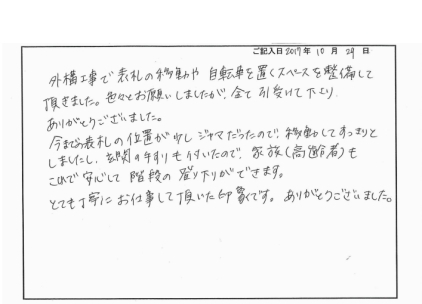 ご記入日 2017年 10月 29日
外構工事で表札の移動や 自転車を置くスペースを整備して
頂きました。色々とお願いしましたが、全て引受けて下より
ありがとうございました。
今までの表札の位置が少しジャマだったので、移動してすっきりと
しましたし、玄関の手すりも付いたので、家族(高齢者)も
これで安心して階段の登り下りができます。
とても丁寧にお仕事して頂いた印象です。ありがとうございました。